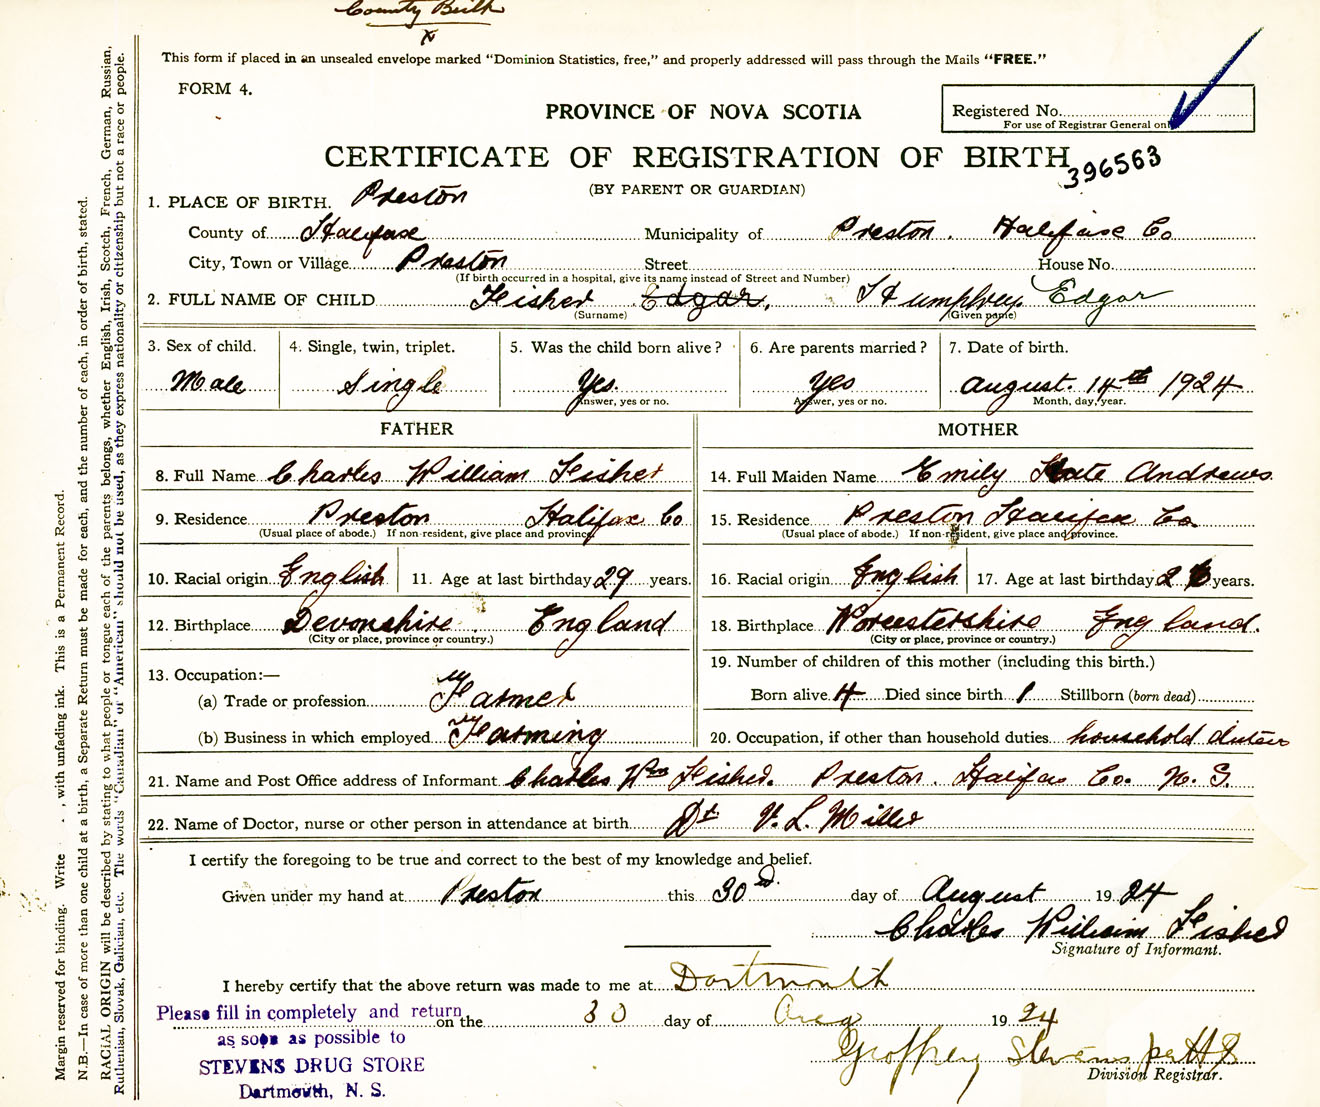 County Birth
x
This form if placed in an unsealed envelope marked "Dominion Statistics, free," and properly addressed will pass through the Mails "FREE."
FORM 4.
PROVINCE OF NOVA SCOTIA
Registered No.
For use of Registrar General only
CERTIFICATE OF REGISTRATION OF BIRTH
396563
(BY PARENT OR GUARDIAN)
1. PLACE OF BIRTH. Preston
County of Halifax Municipality of Preston. Halifax Co
City, Town or Village Preston Street House No.
(If birth occurred in a hospital, give its name instead of Street and Number)
2. FULL NAME OF CHILD Fisher Edgar, Humphrey Edgar
(Surname) (Given name)
3. Sex of child. 4. Single, twin, triplet. 5. Was the child born alive? 6. Are parents married? 7. Date of birth.
Male Single Yes. Yes August. 14th 1924
Answer, yes or no. Answer, yes or no. Month, day, year.
FATHER MOTHER
8. Full Name Charles William Fisher 14. Full Maiden Name Emily Kate Andrews.
9. Residence Preston Halifax Co 15. Residence Preston Halifax Co.
(Usual place of abode.) If non-resident, give place and province. (Usual place of abode.) If non-resident, give place and province.
10. Racial origin English 11. Age at last birthday 29 years. 16. Racial origin English 17. Age at last birthday 26 years.
12. Birthplace Devonshire England 18. Birthplace Worcestershire England.
(City or place, province or country.) (City or place, province or country.)
13. Occupation:— 19. Number of children of this mother (including this birth.)
(a) Trade or profession Farmer Born alive 4 Died since birth 1 Stillborn (born dead)
(b) Business in which employed Farming 20. Occupation, if other than household duties household duties
21. Name and Post Office address of Informant Charles Wm Fisher. Preston. Halifax Co. N. S.
22. Name of Doctor, nurse or other person in attendance at birth Dr V. L. Miller
I certify the foregoing to be true and correct to the best of my knowledge and belief.
Given under my hand at Preston this 30d. day of August 1924
Charles William Fisher
Signature of Informant.
I hereby certify that the above return was made to me at Dartmouth
on the 30 day of Aug 1924
Geoffrey Stevens per HS
Division Registrar.
Please fill in completely and return
as soon as possible to
STEVENS DRUG STORE
Dartmouth, N. S.
Margin reserved for binding. Write with unfading ink. This is a Permanent Record.
N.B.—In case of more than one child at a birth, a Separate Return must be made for each, and the number of each, in order of birth, stated.
RACIAL ORIGIN will be described by stating to what people or tongue each of the parents belongs, whether English, Irish, Scotch, French, German, Russian,
Ruthenian, Slovak, Galician, etc. The words "Canadian" or "American" should not be used, as they express nationality or citizenship but not a race or people.